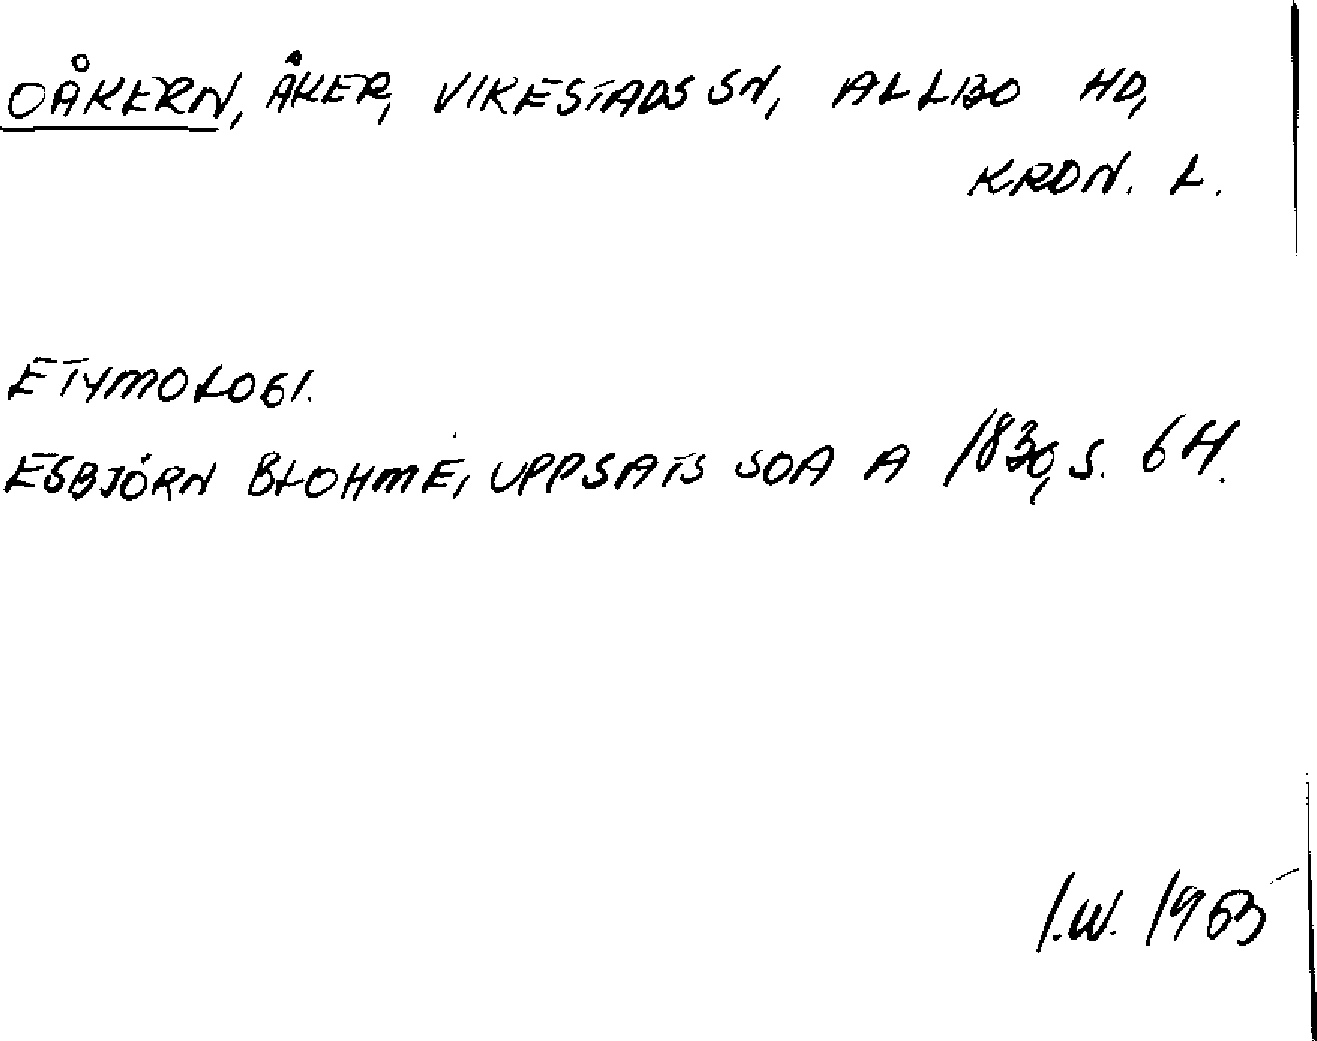 OÅKERN, ÅKER, VIKESTADS SN, ALLBO HD,
KRON. L.
ETYMOLOGI.
ESBJÖRN BLOHMÉ, UPPSATS SOA A 1830, S. 64.
I.W. 1965